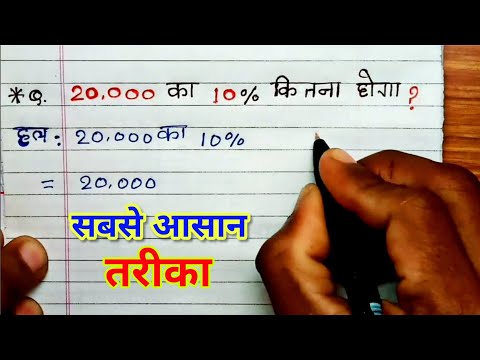 *Q. 20,000 का 10% कितना होगा ?
हल : 20,000 का 10%
= 20,000
सबसे आसान
तरीका